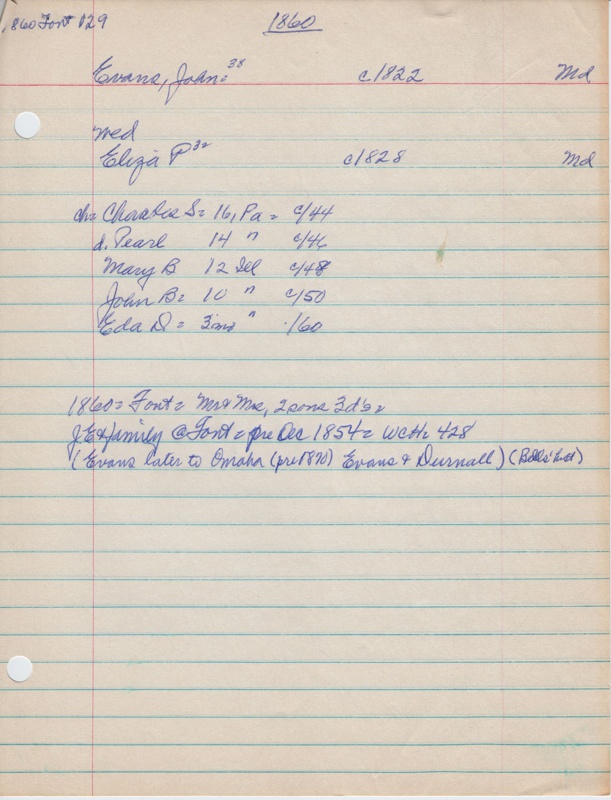 1860 Font 129
1860
Evans, John = 38 c1822 Md
wed
Eliza P 32 c1828 Md
ch = Charles S = 16, Pa = c/44
d. Pearl 14 " c/46
Mary B 12 Ill c/48
John B = 10 " c/50
Eda D = 3 mo " /60
1860 = Font = Mr & Mrs, 2 sons 3 d's =
JE & family @ Font = pre Dec 1854 = WCH = 428
(Evans later to Omaha (pre 1870) Evans & Durnall) (Bells' )